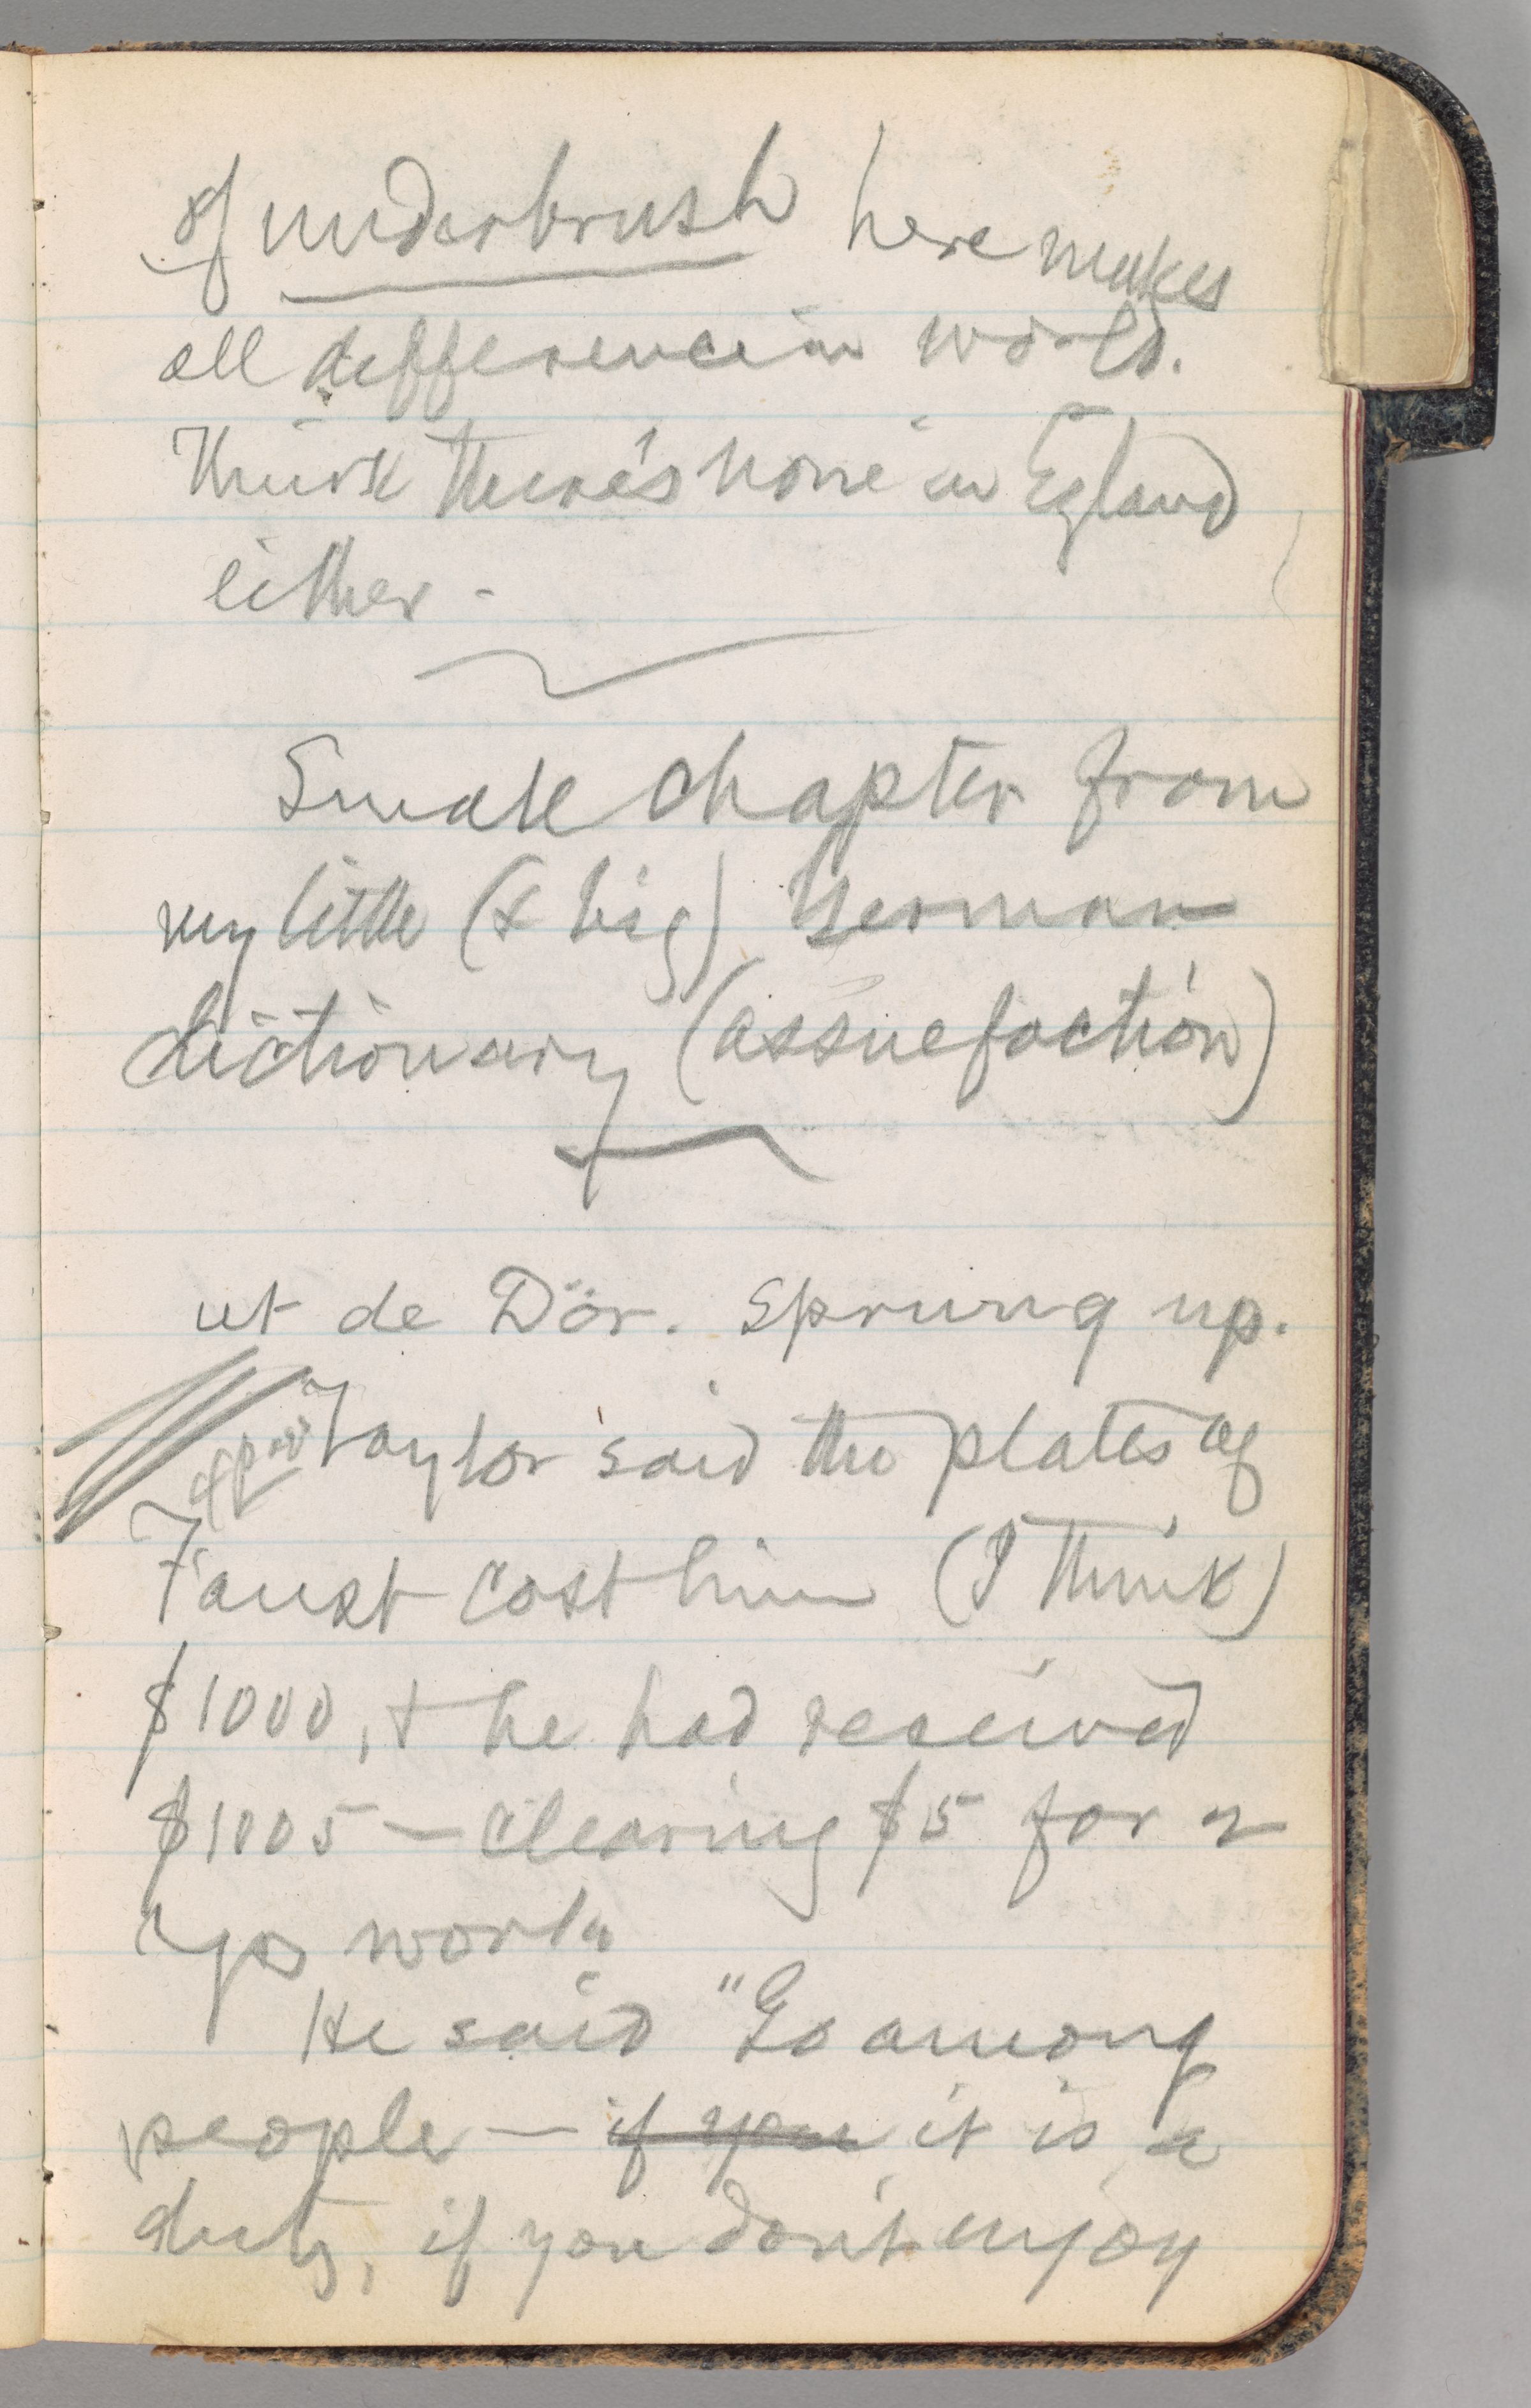 of underbrush here makes
all difference in world.
Think there's none in Egland
either -
Small chapter from
my little (& big) German
dictionary (assuefaction)
ut de Dör. Sprung up.
Taylor said the plates of
Faust cost him (I think)
$1000, & he had received
$1005 — clearing $5 for
yrs work.
He said "Go among
people — if you it is a
duty, if you don't enjoy